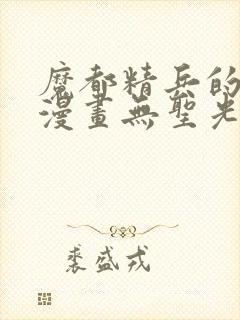 魔都精兵的
漫畫無聖光
裘盛戎